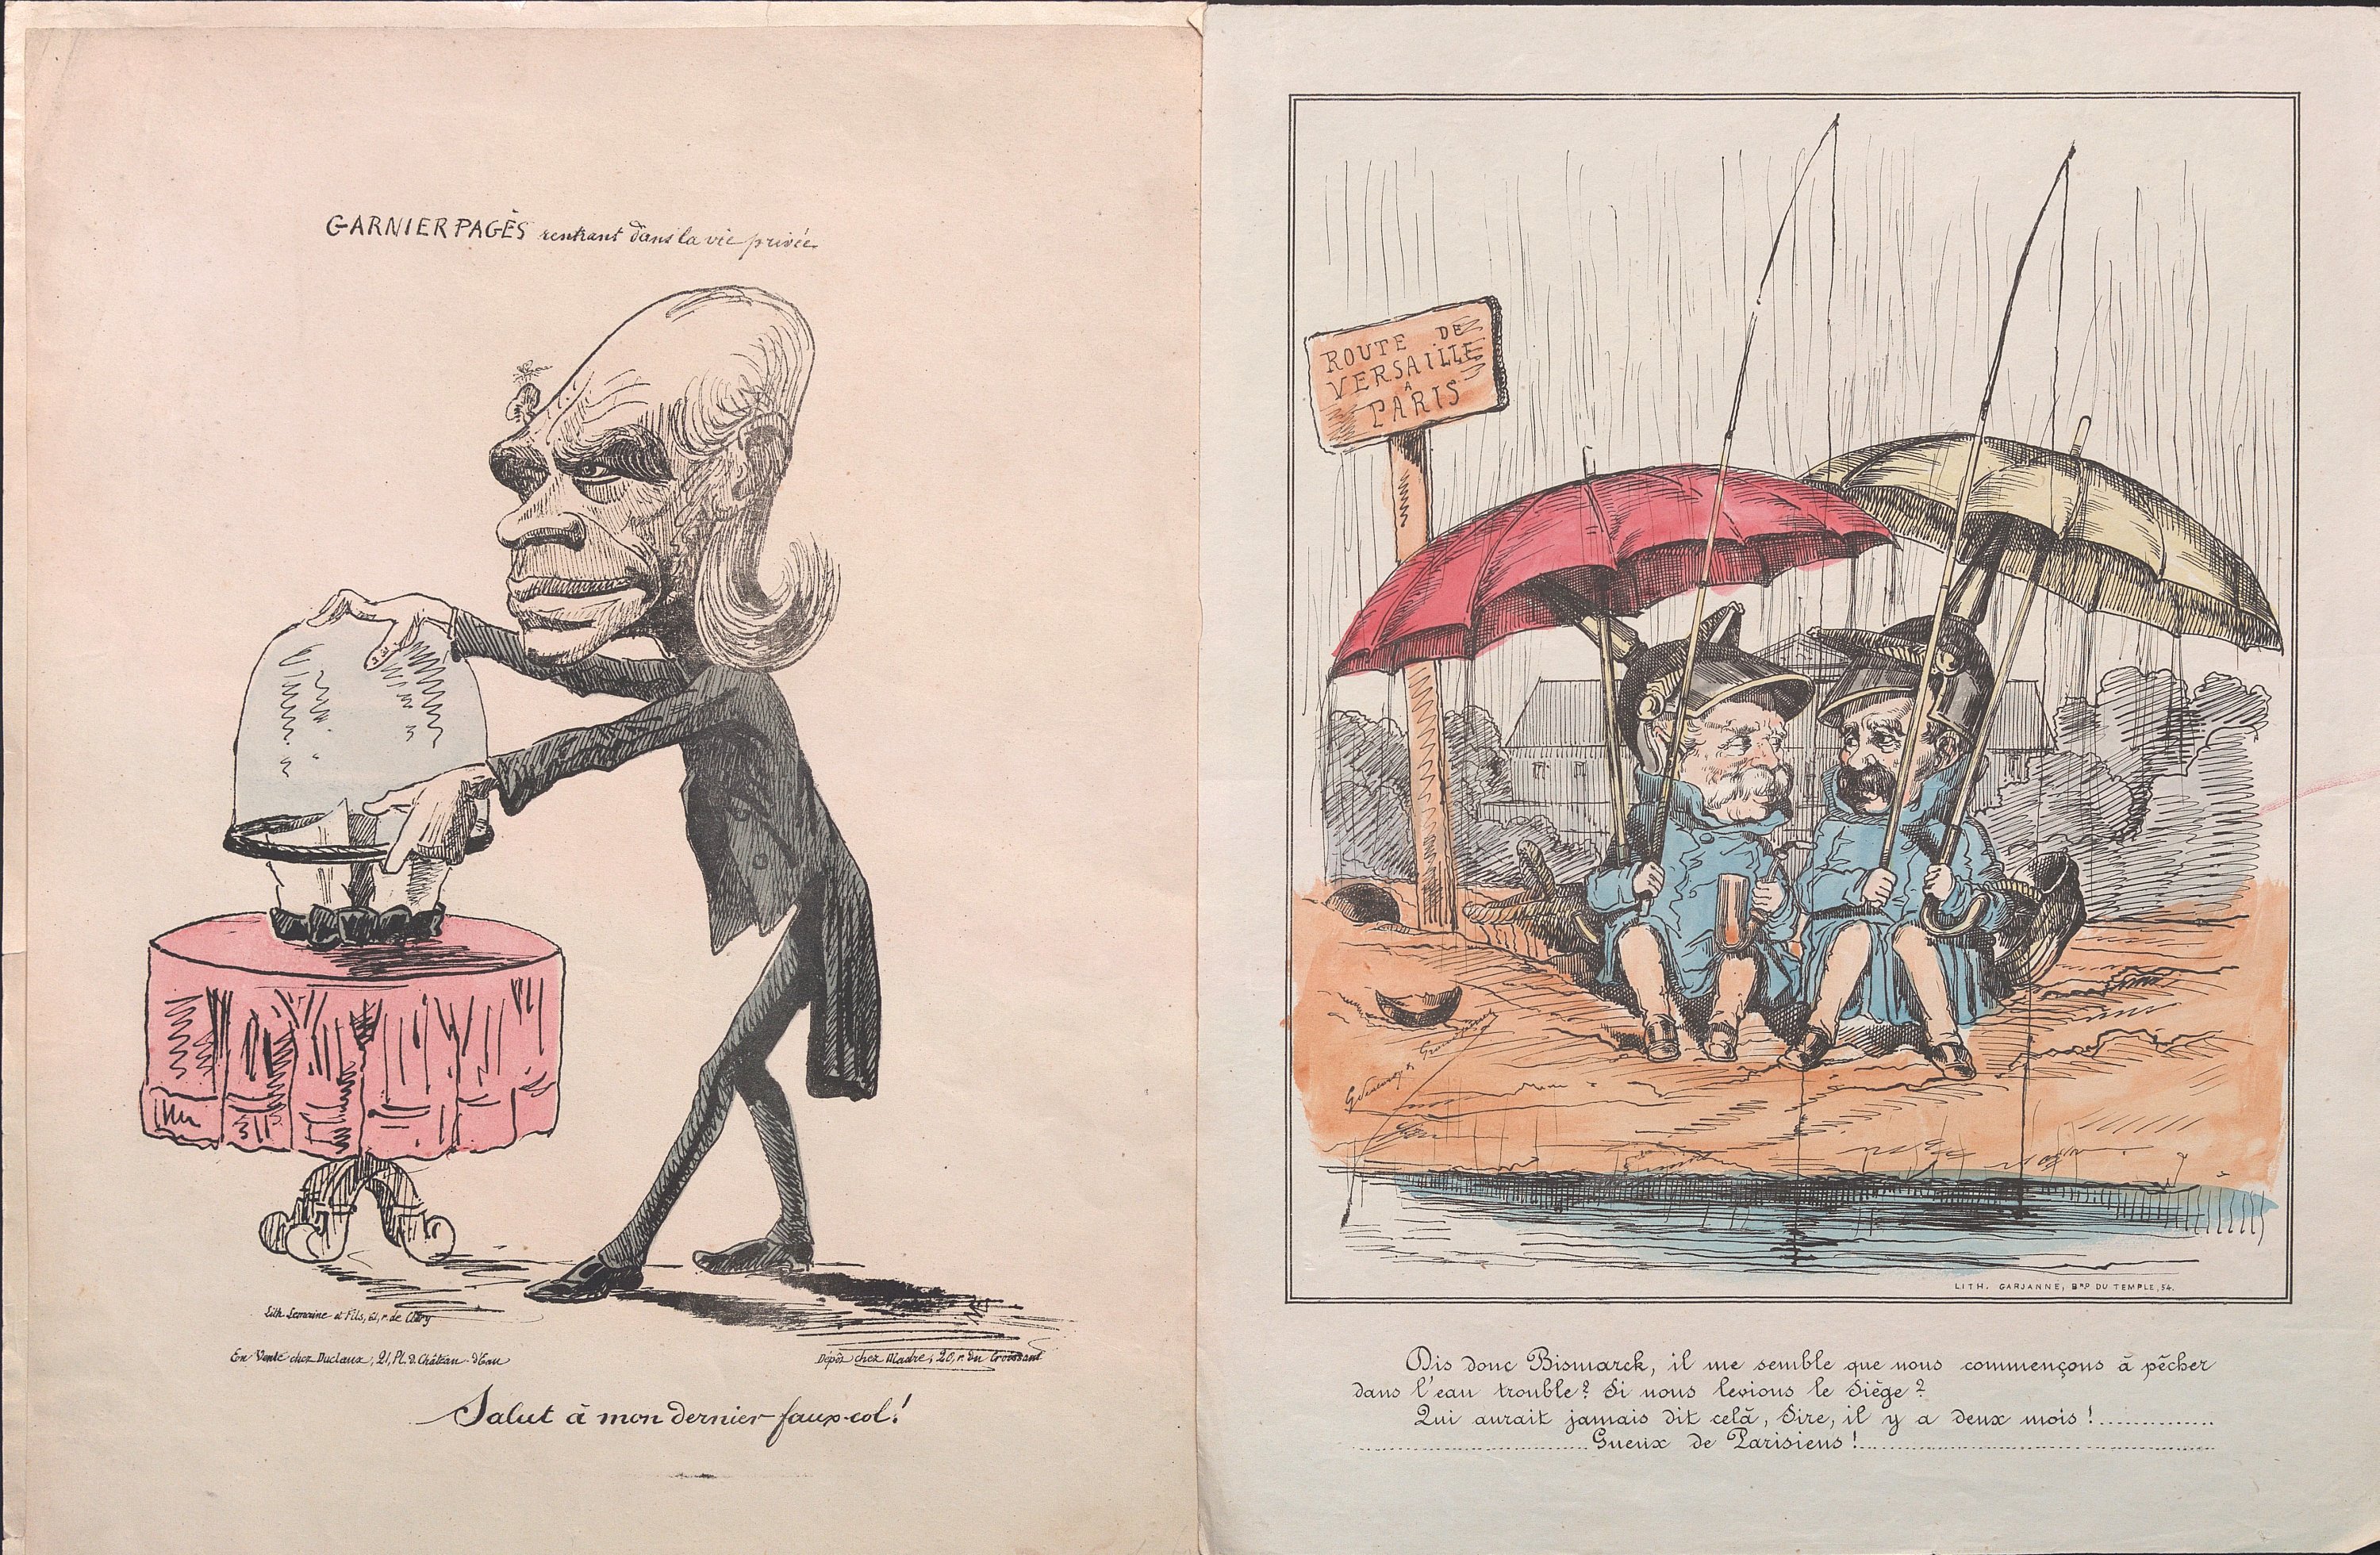 GARNIER PAGÈS rentrant dans la vie privée
Lith. Lemaine et Fils, 61, r. de Cléry
En Vente chez Duclaux, 21, Pl. d. Château-d'Eau
Dépôt chez Madre, 20, r. du Croissant
Salut à mon dernier faux-col!
ROUTE DE
VERSAILLE
A
PARIS
LITH. GARJANNE, BARD DU TEMPLE, 54.
Dis donc Bismarck, il me semble que nous commençons à pêcher
dans l'eau trouble? Si nous levions le Siège?
Qui aurait jamais dit celà, Sire, il y a deux mois!..............
..............................Gueux de Parisiens!..............................